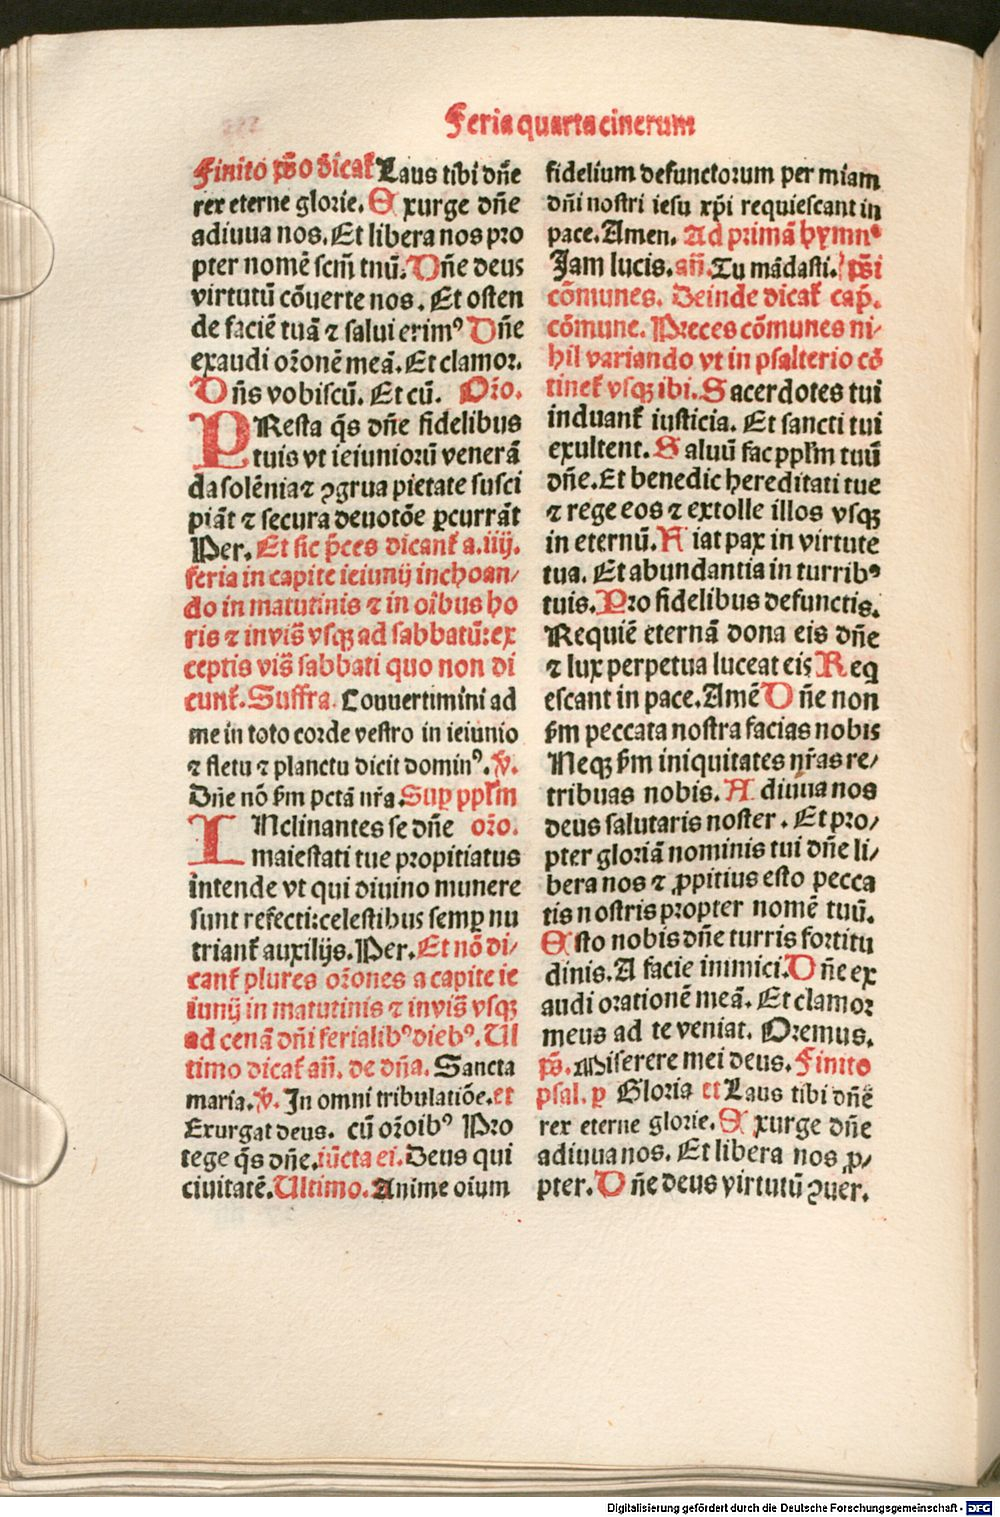 Feria quarta cinerum
Finito ps̄o dicat᷑ Laus tibi dn̄e
rex eterne glorie. Exurge dn̄e
adiuua nos. Et libera nos pro
pter nomē scm̄ tuū. Dn̄e deus
virtutū cōuerte nos. Et osten
de faciē tuā ⁊ salui erimꝰ Dn̄e
exaudi or̄onē meā. Et clamor.
Dn̄s vobiscū. Et cū. Or̄o.
PResta q̄s dn̄e fidelibus
tuis vt ieiuniorū venerā
da solēnia ⁊ ꝯgrua pietate susci
piāt ⁊ secura deuotōe ꝑcurrāt
Per. Et sic p̄ces dicant᷑ a .iiij.
feria in capite ieiunij inchoan/
do in matutinis ⁊ in oībus ho
ris ⁊ in vis̄ vsqꝫ ad sabbatū: ex
ceptis vis̄ sabbati quo non di
cunt᷑. Suffra. Conuertimini ad
me in toto corde vestro in ieiunio
⁊ fletu ⁊ planctu dicit dominꝰ. ℣.
Dn̄e nō s̄m pctā nr̄a. Suꝑ pplm̄
INclinantes se dn̄e or̄o.
maiestati tue propitiatus
intende vt qui diuino munere
sunt refecti: celestibus semꝑ nu
triant᷑ auxilijs. Per. Et nō di/
cant᷑ plures or̄ones a capite ie
iunij in matutinis ⁊ in vis̄ vsqꝫ
ad cenā dn̄i ferialibꝰ diebꝰ. Ul
timo dicat᷑ an̄. de dn̄a. Sancta
maria. ℣. In omni tribulatiōe. et
Exurgat deus. cū or̄oibꝰ Pro
tege q̄s dn̄e. iūcta ei. Deus qui
ciuitatē. Ultimo. Anime oīum
fidelium defunctorum per miam
dn̄i nostri iesu xp̄i requiescant in
pace. Amen. Ad primā hymnꝰ
Jam lucis. an̄. Tu mādasti. ps̄i
cōmunes. Deinde dicat᷑ cap̄.
cōmune. Preces cōmunes ni/
hil variando vt in psalterio cō
tinet᷑ vsqꝫ ibi. Sacerdotes tui
induant᷑ iusticia. Et sancti tui
exultent. Saluū fac pplm̄ tuū
dn̄e. Et benedic hereditati tue
⁊ rege eos ⁊ extolle illos vsqꝫ
in eternū. Fiat pax in virtute
tua. Et abundantia in turribꝰ
tuis. Pro fidelibus defunctis.
Requiē eternā dona eis dn̄e
⁊ lux perpetua luceat eis Req
escant in pace. Amē Dn̄e non
s̄m peccata nostra facias nobis
Neqꝫ s̄m iniquitates nr̄as re/
tribuas nobis. Adiuua nos
deus salutaris noster. Et pro/
pter gloriā nominis tui dn̄e li/
bera nos ⁊ ꝓpitius esto pecca
tis nostris propter nomē tuū.
Esto nobis dn̄e turris fortitu
dinis. A facie inimici. Dn̄e ex
audi orationē meā. Et clamor
meus ad te veniat. Oremus.
ps̄. Miserere mei deus. Finito
psal. ꝑ Gloria et Laus tibi dn̄e
rex eterne glorie. Exurge dn̄e
adiuua nos. Et libera nos ꝓ/
pter. Dn̄e deus virtutū ꝯuer.
Digitalisierung gefördert durch die Deutsche Forschungsgemeinschaft - DFG